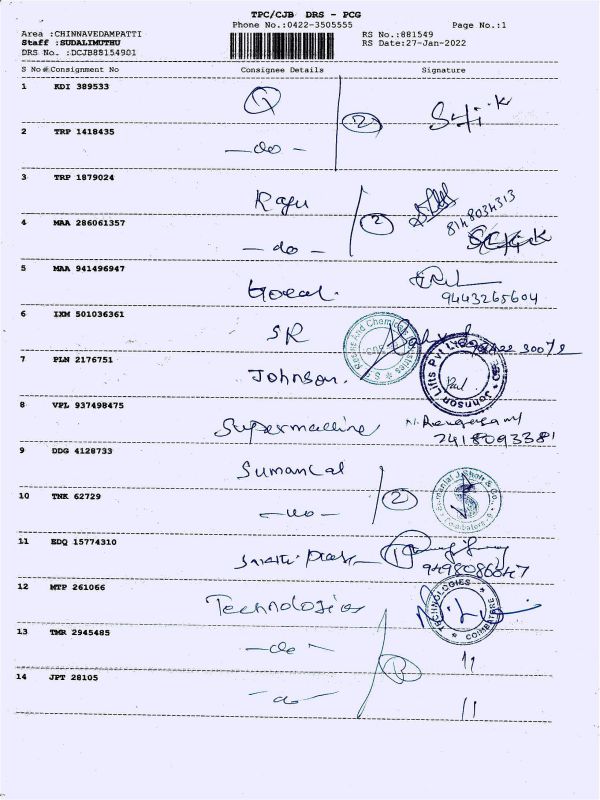 TPC/CJB DRS - PCG
Phone No.:0422-3505555
Page No.:1
Area :CHINNAVEDAMPATTI
Staff :SUDALIMUTHU
DRS No. :DCJB88154901
RS No.:881549
RS Date:27-Jan-2022
S No#Consignment No Consignee Details Signature
1 KDI 389533
2
2 TRP 1418435 — do —
3 TRP 1879024 Raju
8148034313
4 MAA 286061357 — do — 2
5 MAA 941496947
9443265604
6 IXM 501036361 SR
7 PLN 2176751 Johnson.
Johnson Lifts Pvt Ltd
8 VPL 937498475
2418093381
9 DDG 4128733 Sumanlal
Sumanlal J. Shah & Co.,
Coimbatore
10 TNK 62729 — do — 2
11 EDQ 15774310
9498086847
12 MTP 261066 Technologies
TECHNOLOGIES
COIMBATORE
13 TMR 2945485 — do — 11
14 JPT 28105 — do — 11